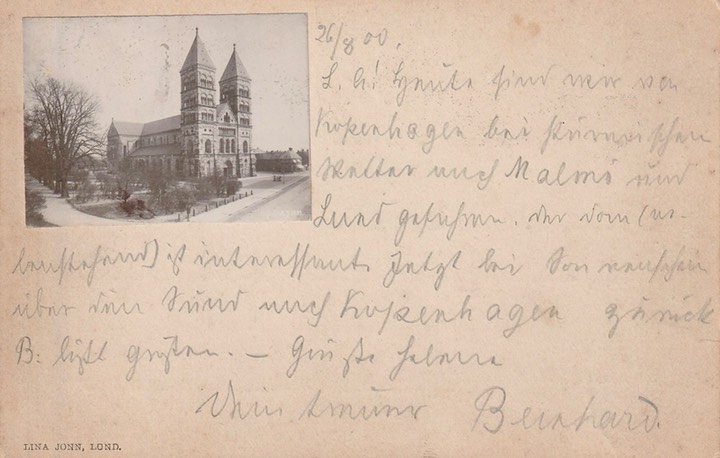 26/8 00.
L. A! Heute sind wir von
Kopenhagen bei stürmischen
Wetter nach Malmö und
Lund gefahren. Der Dom (ne-
benstehend) ist interessant. Jetzt bei Sonnenschein
über den Sund nach Kopenhagen zurück
B: läßt grüßen. — Grüße Helene
Dein treuer Bernhard.
LINA JONN, LUND.